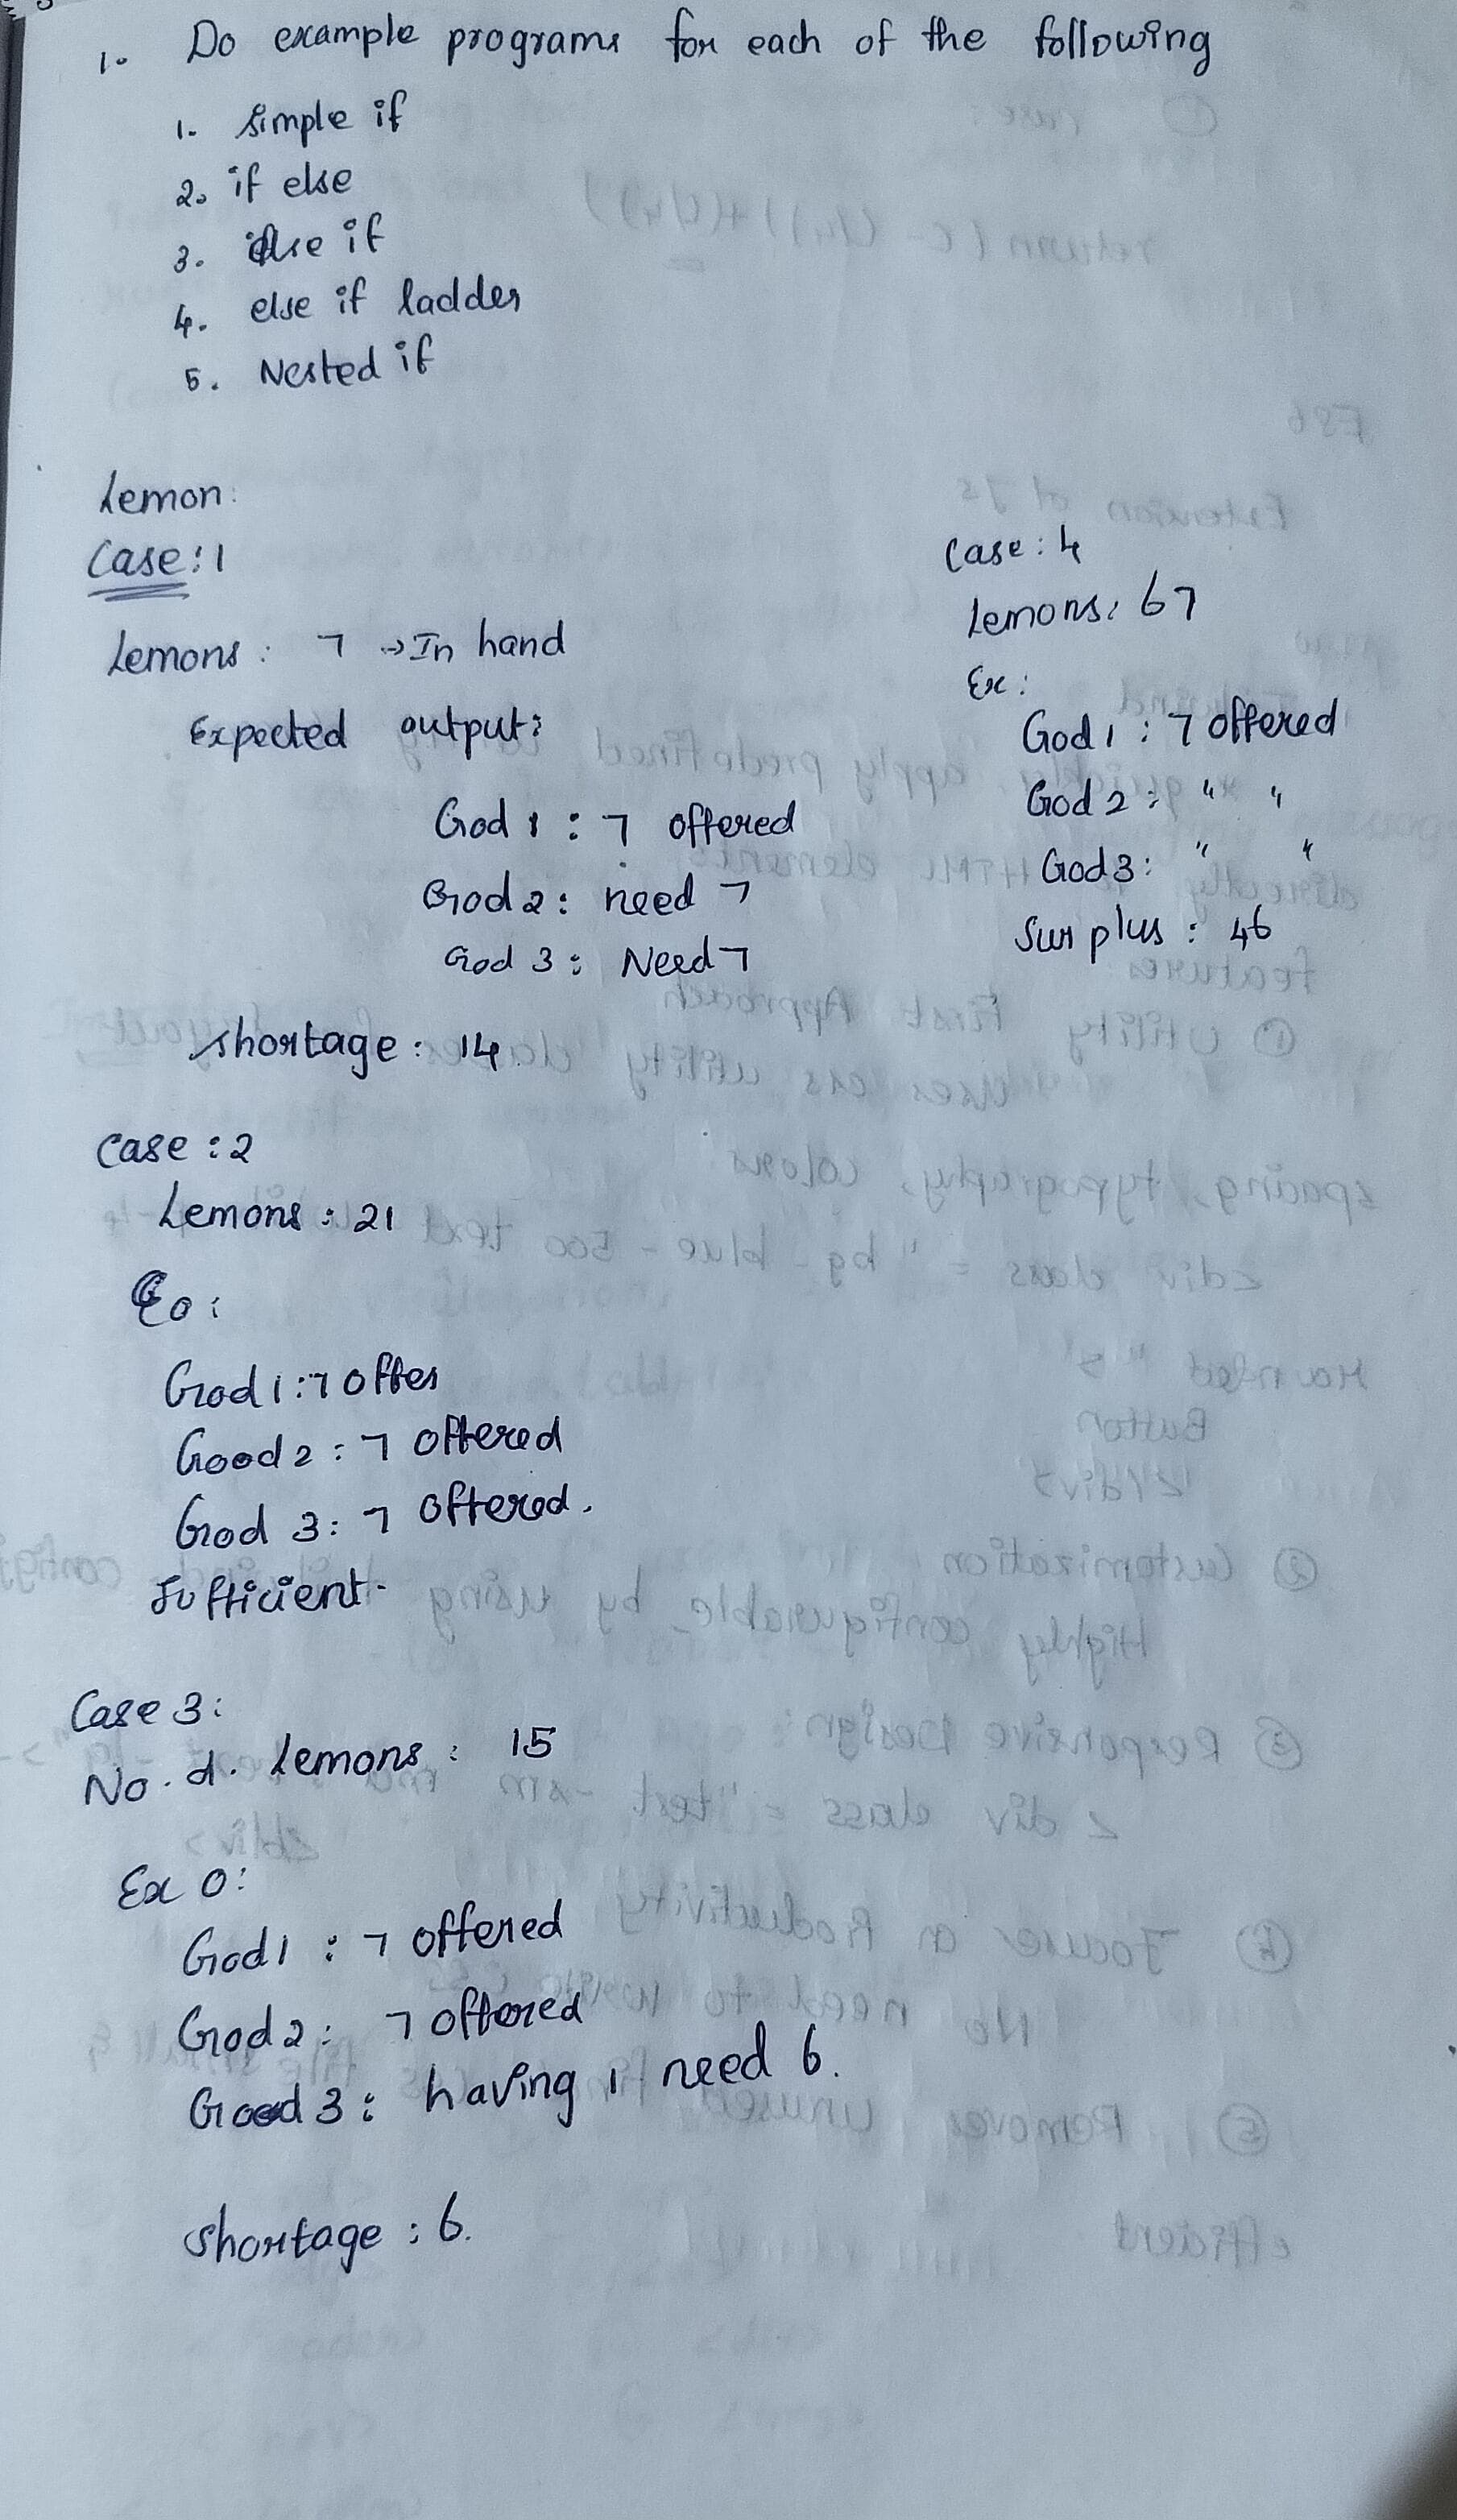 1. Do example programs for each of the following
1. simple if
2. if else
3. else if
4. else if ladder
5. Nested if
Lemon:
Case:1
Lemons: 7 → In hand
Expected output:
God 1 : 7 offered
God 2: need 7
God 3: Need 7
shortage: 14
Case :2
Lemons: 21
Eo:
God 1:7 offer
Good 2: 7 offered
God 3: 7 offered.
Sufficient.
Case 3:
No. d. Lemons: 15
Ex O:
God 1 : 7 offered
God 2: 7 offered
God 3: having 1 need 6.
shortage: 6.
Case: 4
Lemons: 67
Ex:
God 1 : 7 offered
God 2: " "
God 3: " "
Surplus: 46